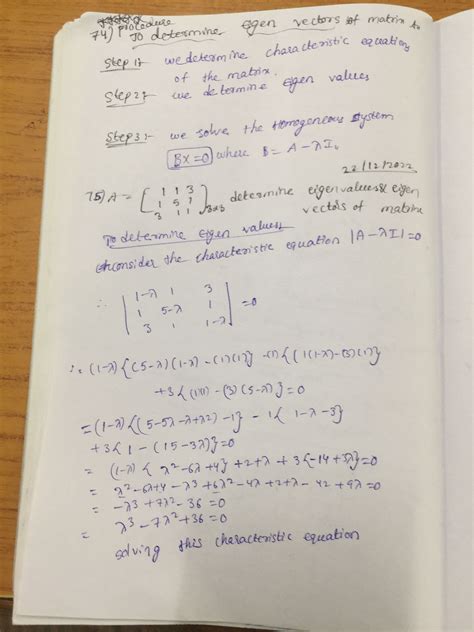 74) procedure
To determine eigen vectors of matrix
Step 1:- we determine characteristic equation
of the matrix.
Step 2:- we determine eigen values
Step 3:- we solve the homogeneous system
BX=0 where B= A-λI.
22/12/2022
75) A = [1 1 3
1 5 1
3 1 1]3x3 determine eigen values & eigen
vectors of matrix
To determine eigen values
consider the characteristic equation |A-λI|=0
∴ |1-λ 1 3
1 5-λ 1
3 1 1-λ| =0
∴ (1-λ){(5-λ)(1-λ)-(1)(1)} -(1){(1(1-λ)-(3)(1)}
+3{(1)(1)-(3)(5-λ)}=0
=(1-λ){(5-5λ-λ+λ2)-1} -1{1-λ-3}
+3{1-(15-3λ)}=0
= (1-λ){λ²-6λ+4} +2+λ +3{-14+3λ}=0
= λ²-6λ+4-λ³+6λ²-4λ+2+λ-42+9λ=0
= -λ3+7λ²-36=0
= λ3-7λ²+36=0
solving this characteristic equation